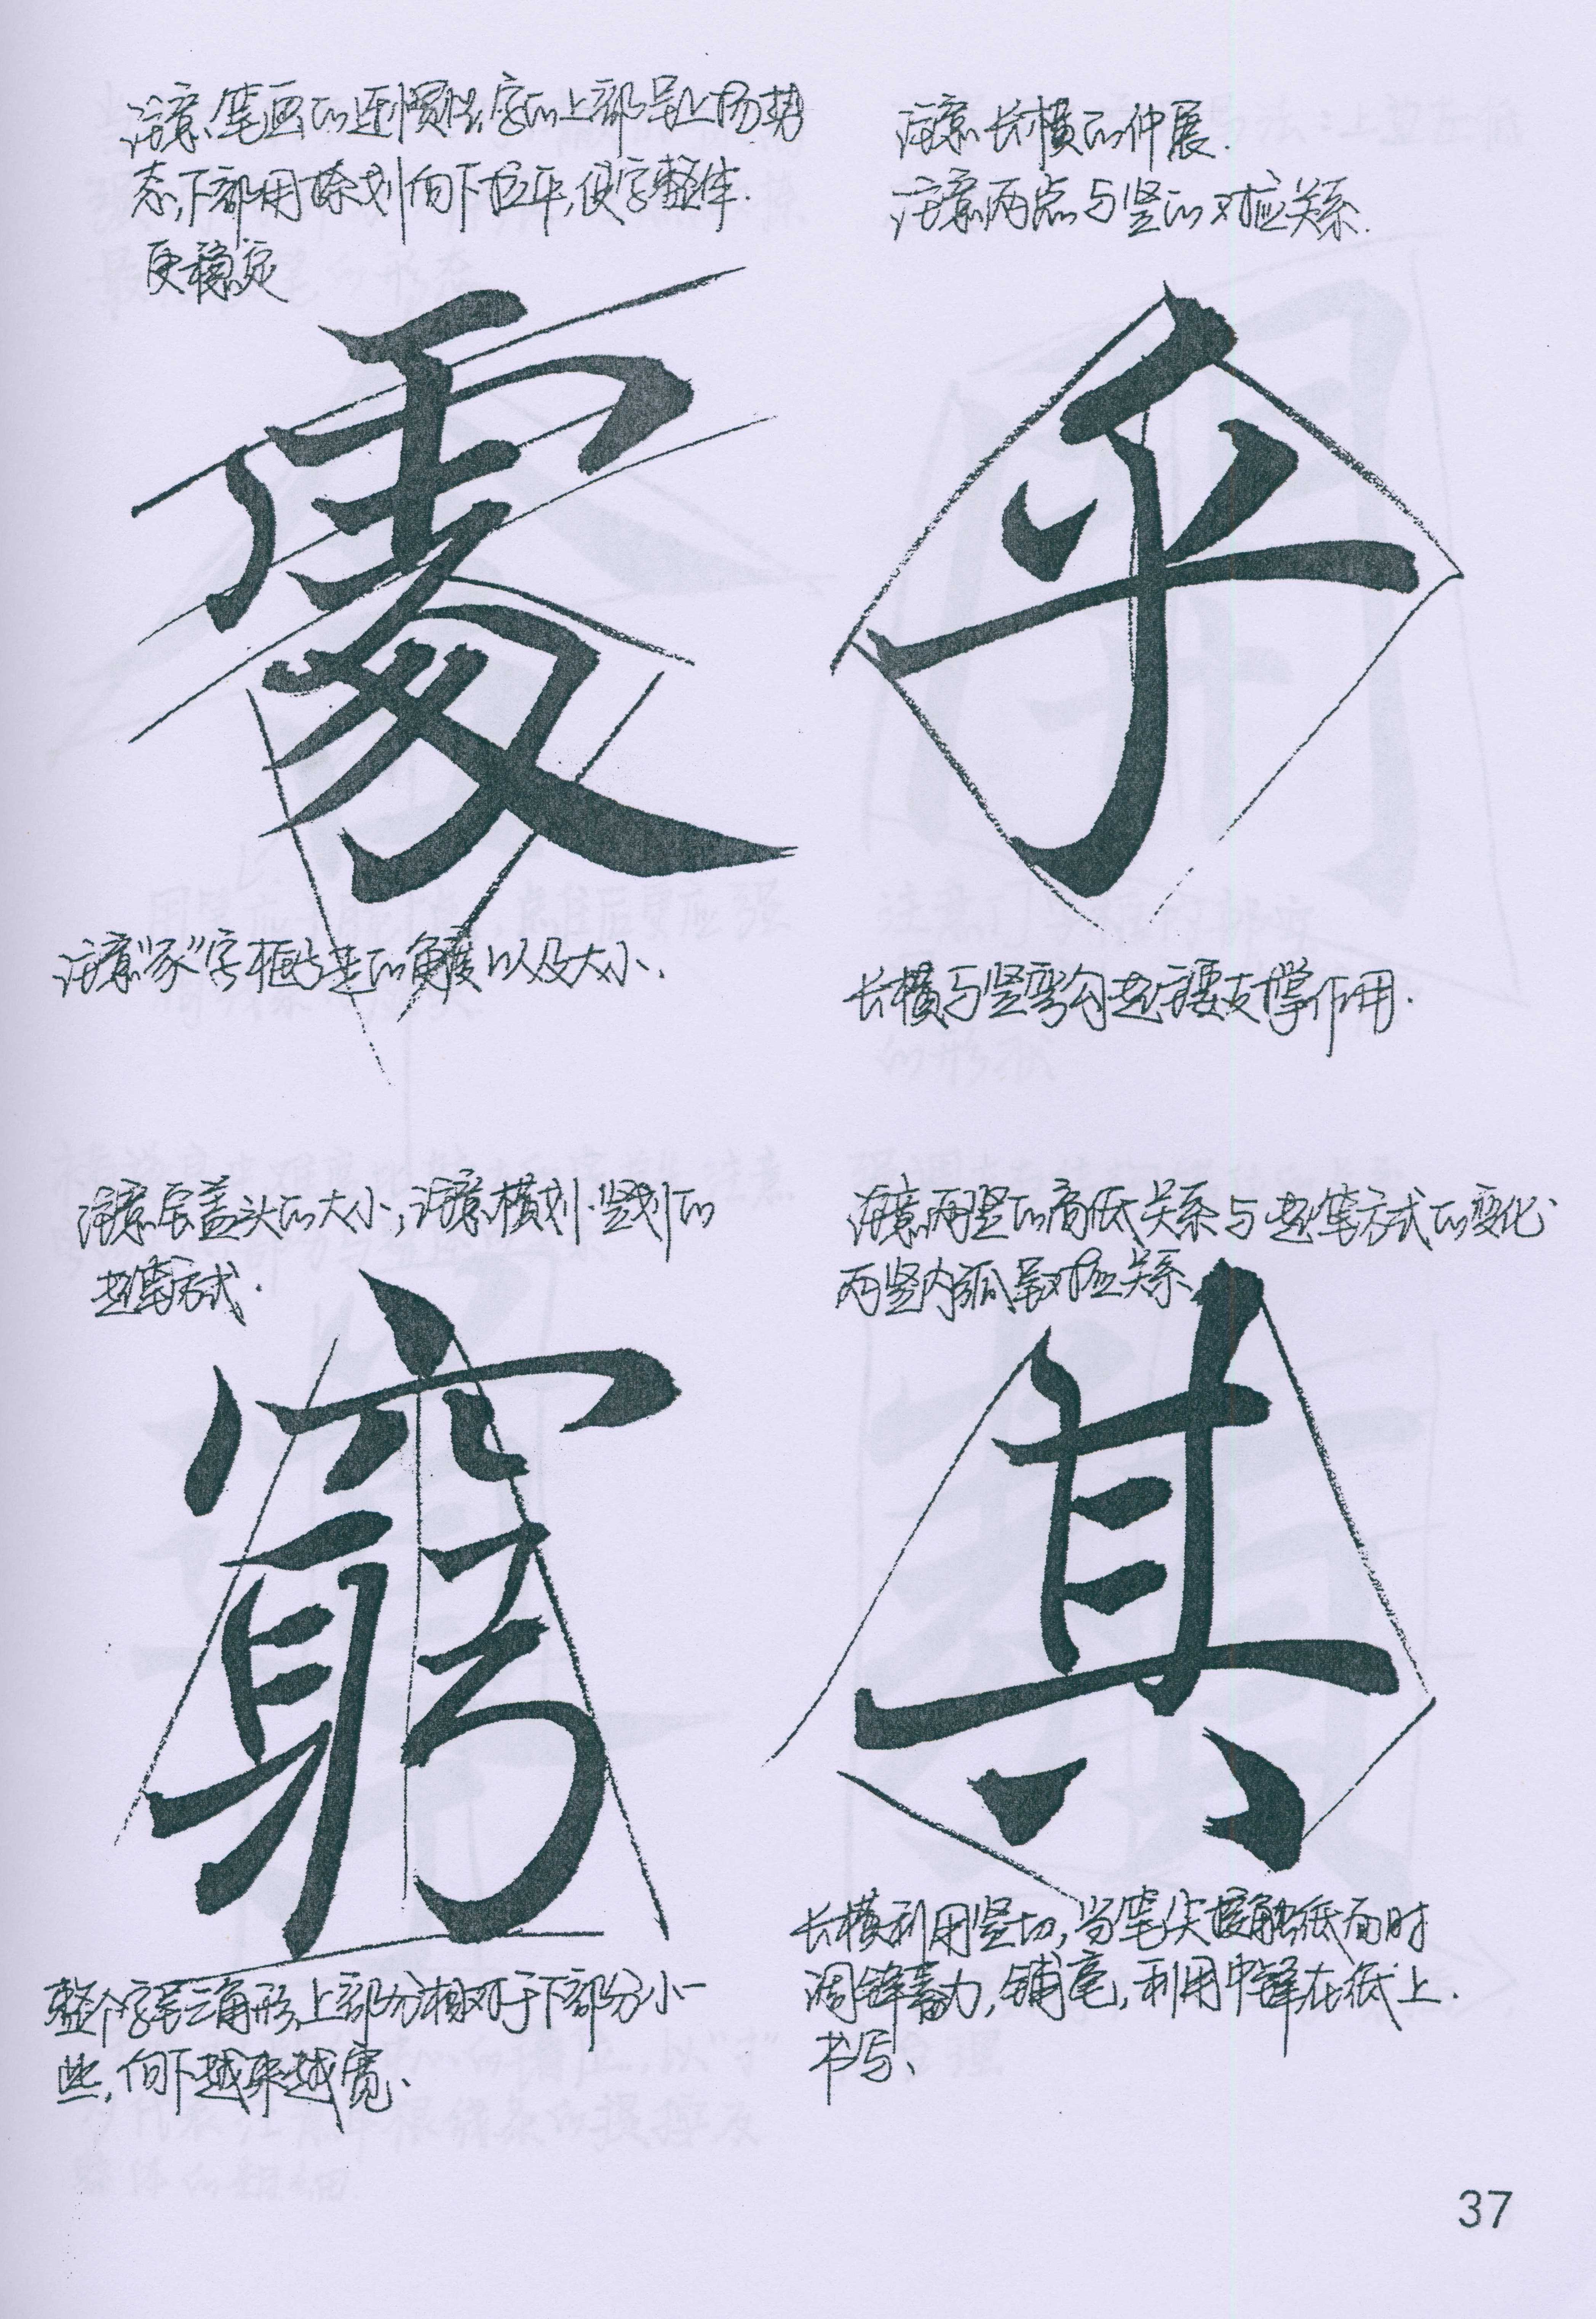 注意笔画的连惯性,字的上部呈上扬势
态,下部用捺划向下拉平,使字整体.
更稳定
處
注意“豕”字框与走的角度以及大小.
注意长横的伸展.
注意两点与竖的对应关系.
乎
长横与竖弯勾起主要支撑作用.
注意宝盖头的大小,注意横划.竖划的
起笔方式.
窮
整个字呈三角形,上部分相对于下部分小一
些,向下越来越宽、
注意两竖的高低关系与起笔方式的变化.
两竖内弧呈对应关系、
其
长横利用竖切,当笔尖接触纸面时
调锋蓄力,铺毫,利用中锋在纸上.
书写、
37